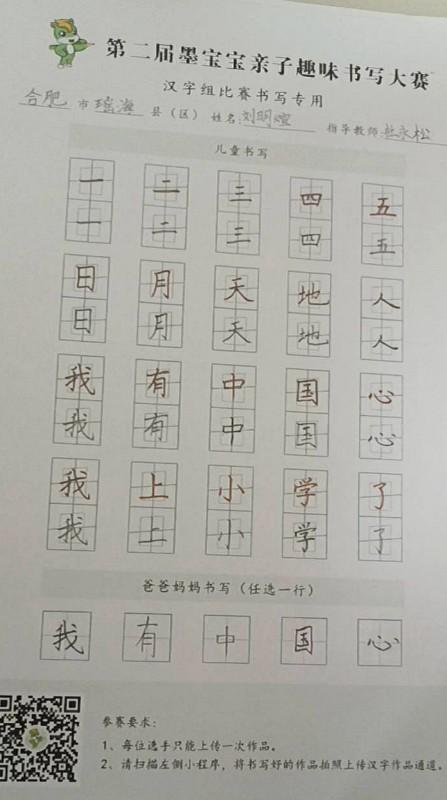 第二届墨宝宝亲子趣味书写大赛
汉字组比赛书写专用
合肥 市 瑶海 县（区） 姓名:刘明煊 指导教师:赵永松
儿童书写
一 二 三 四 五
一 二 三 四 五
日 月 天 地 人
日 月 天 地 人
我 有 中 国 心
我 有 中 国 心
我 上 小 学 了
我 上 小 学 了
爸爸妈妈书写（任选一行）
我 有 中 国 心
参赛要求：
1、每位选手只能上传一次作品。
2、请扫描左侧小程序，将书写好的作品拍照上传汉字作品通道。